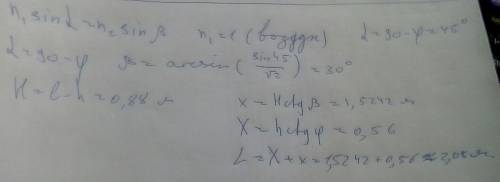 n₁ sin α = n₂ sin β n₁ = 1 (воздух) α = 90 - φ = 45°
α = 90 - φ β = arcsin ( sin 45 / √2 ) = 30°
H = l - h = 0,88 м x = H ctg β = 1,5242 м
X = h ctg φ = 0,56
L = X + x = 1,5242 + 0,56 ≈ 2,08 м